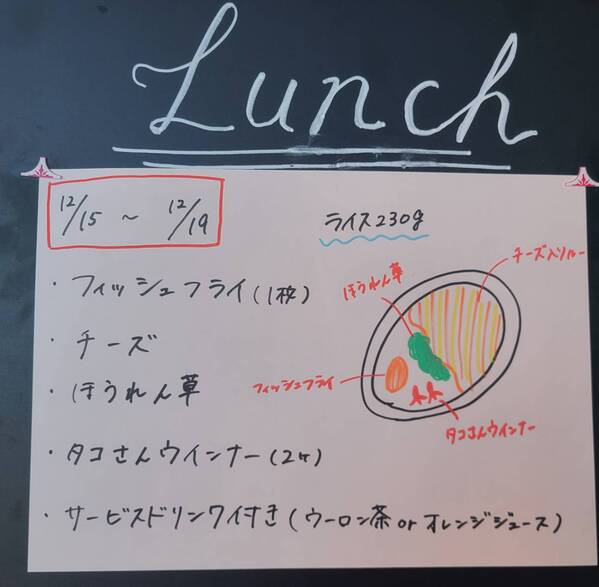 Lunch
12/15 ~ 12/19
ライス230g
・フィッシュフライ(1枚)
・チーズ
・ほうれん草
・タコさんウインナー(2ヶ)
・サービスドリンク付き(ウーロン茶orオレンジジュース)
チーズ入りルー
ほうれん草
フィッシュフライ
タコさんウインナー